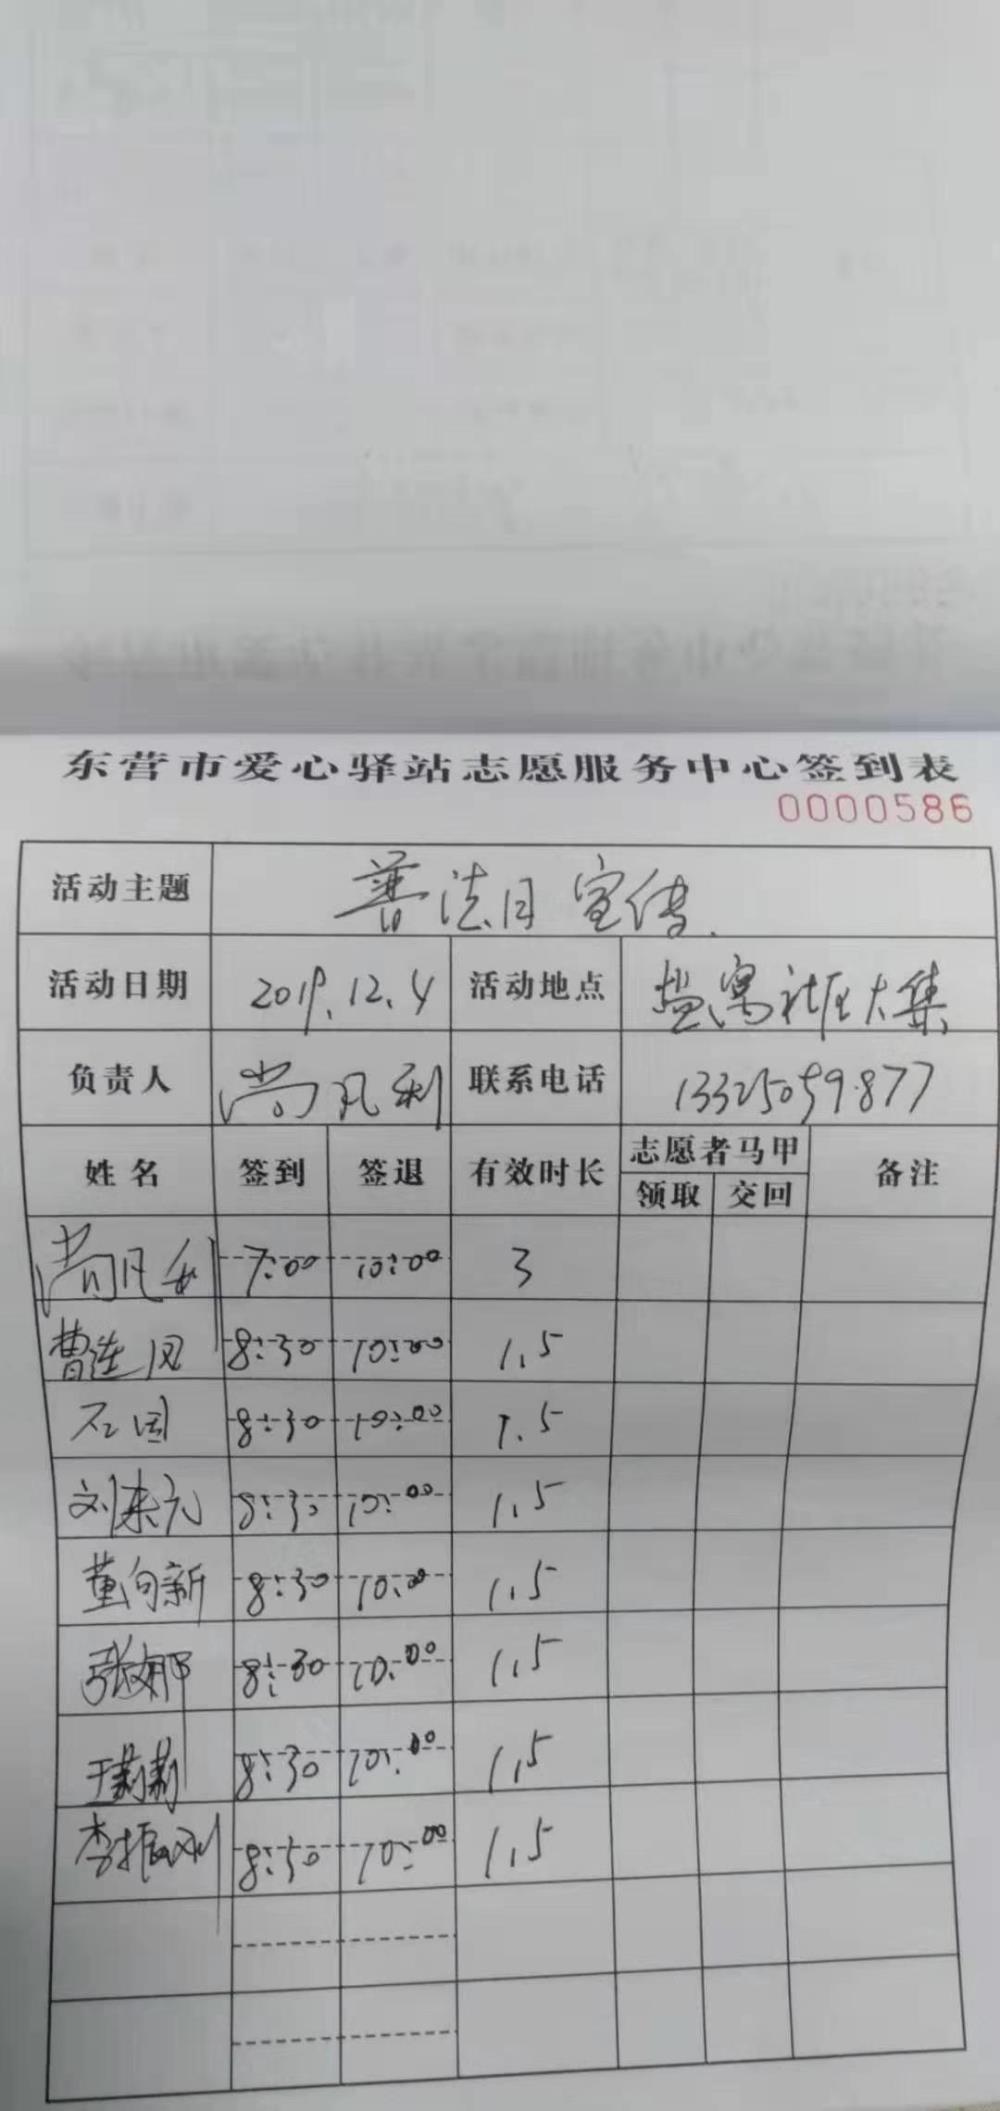 东营市爱心驿站志愿服务中心签到表
0000586
活动主题 普法月宣传
活动日期 2019.12.4 活动地点 盐窝社区大集
负责人 尚凡利 联系电话 13325059877
姓名 签到 签退 有效时长 志愿者马甲 备注
领取 交回
尚凡利 7:00 10:00 3
曹连风 8:30 10:00 1.5
石国 8:30 10:00 1.5
刘来元 8:30 10:00 1.5
董向新 8:30 10:00 1.5
张娜 8:30 10:00 1.5
王莉莉 8:30 10:00 1.5
李振刚 8:30 10:00 1.5